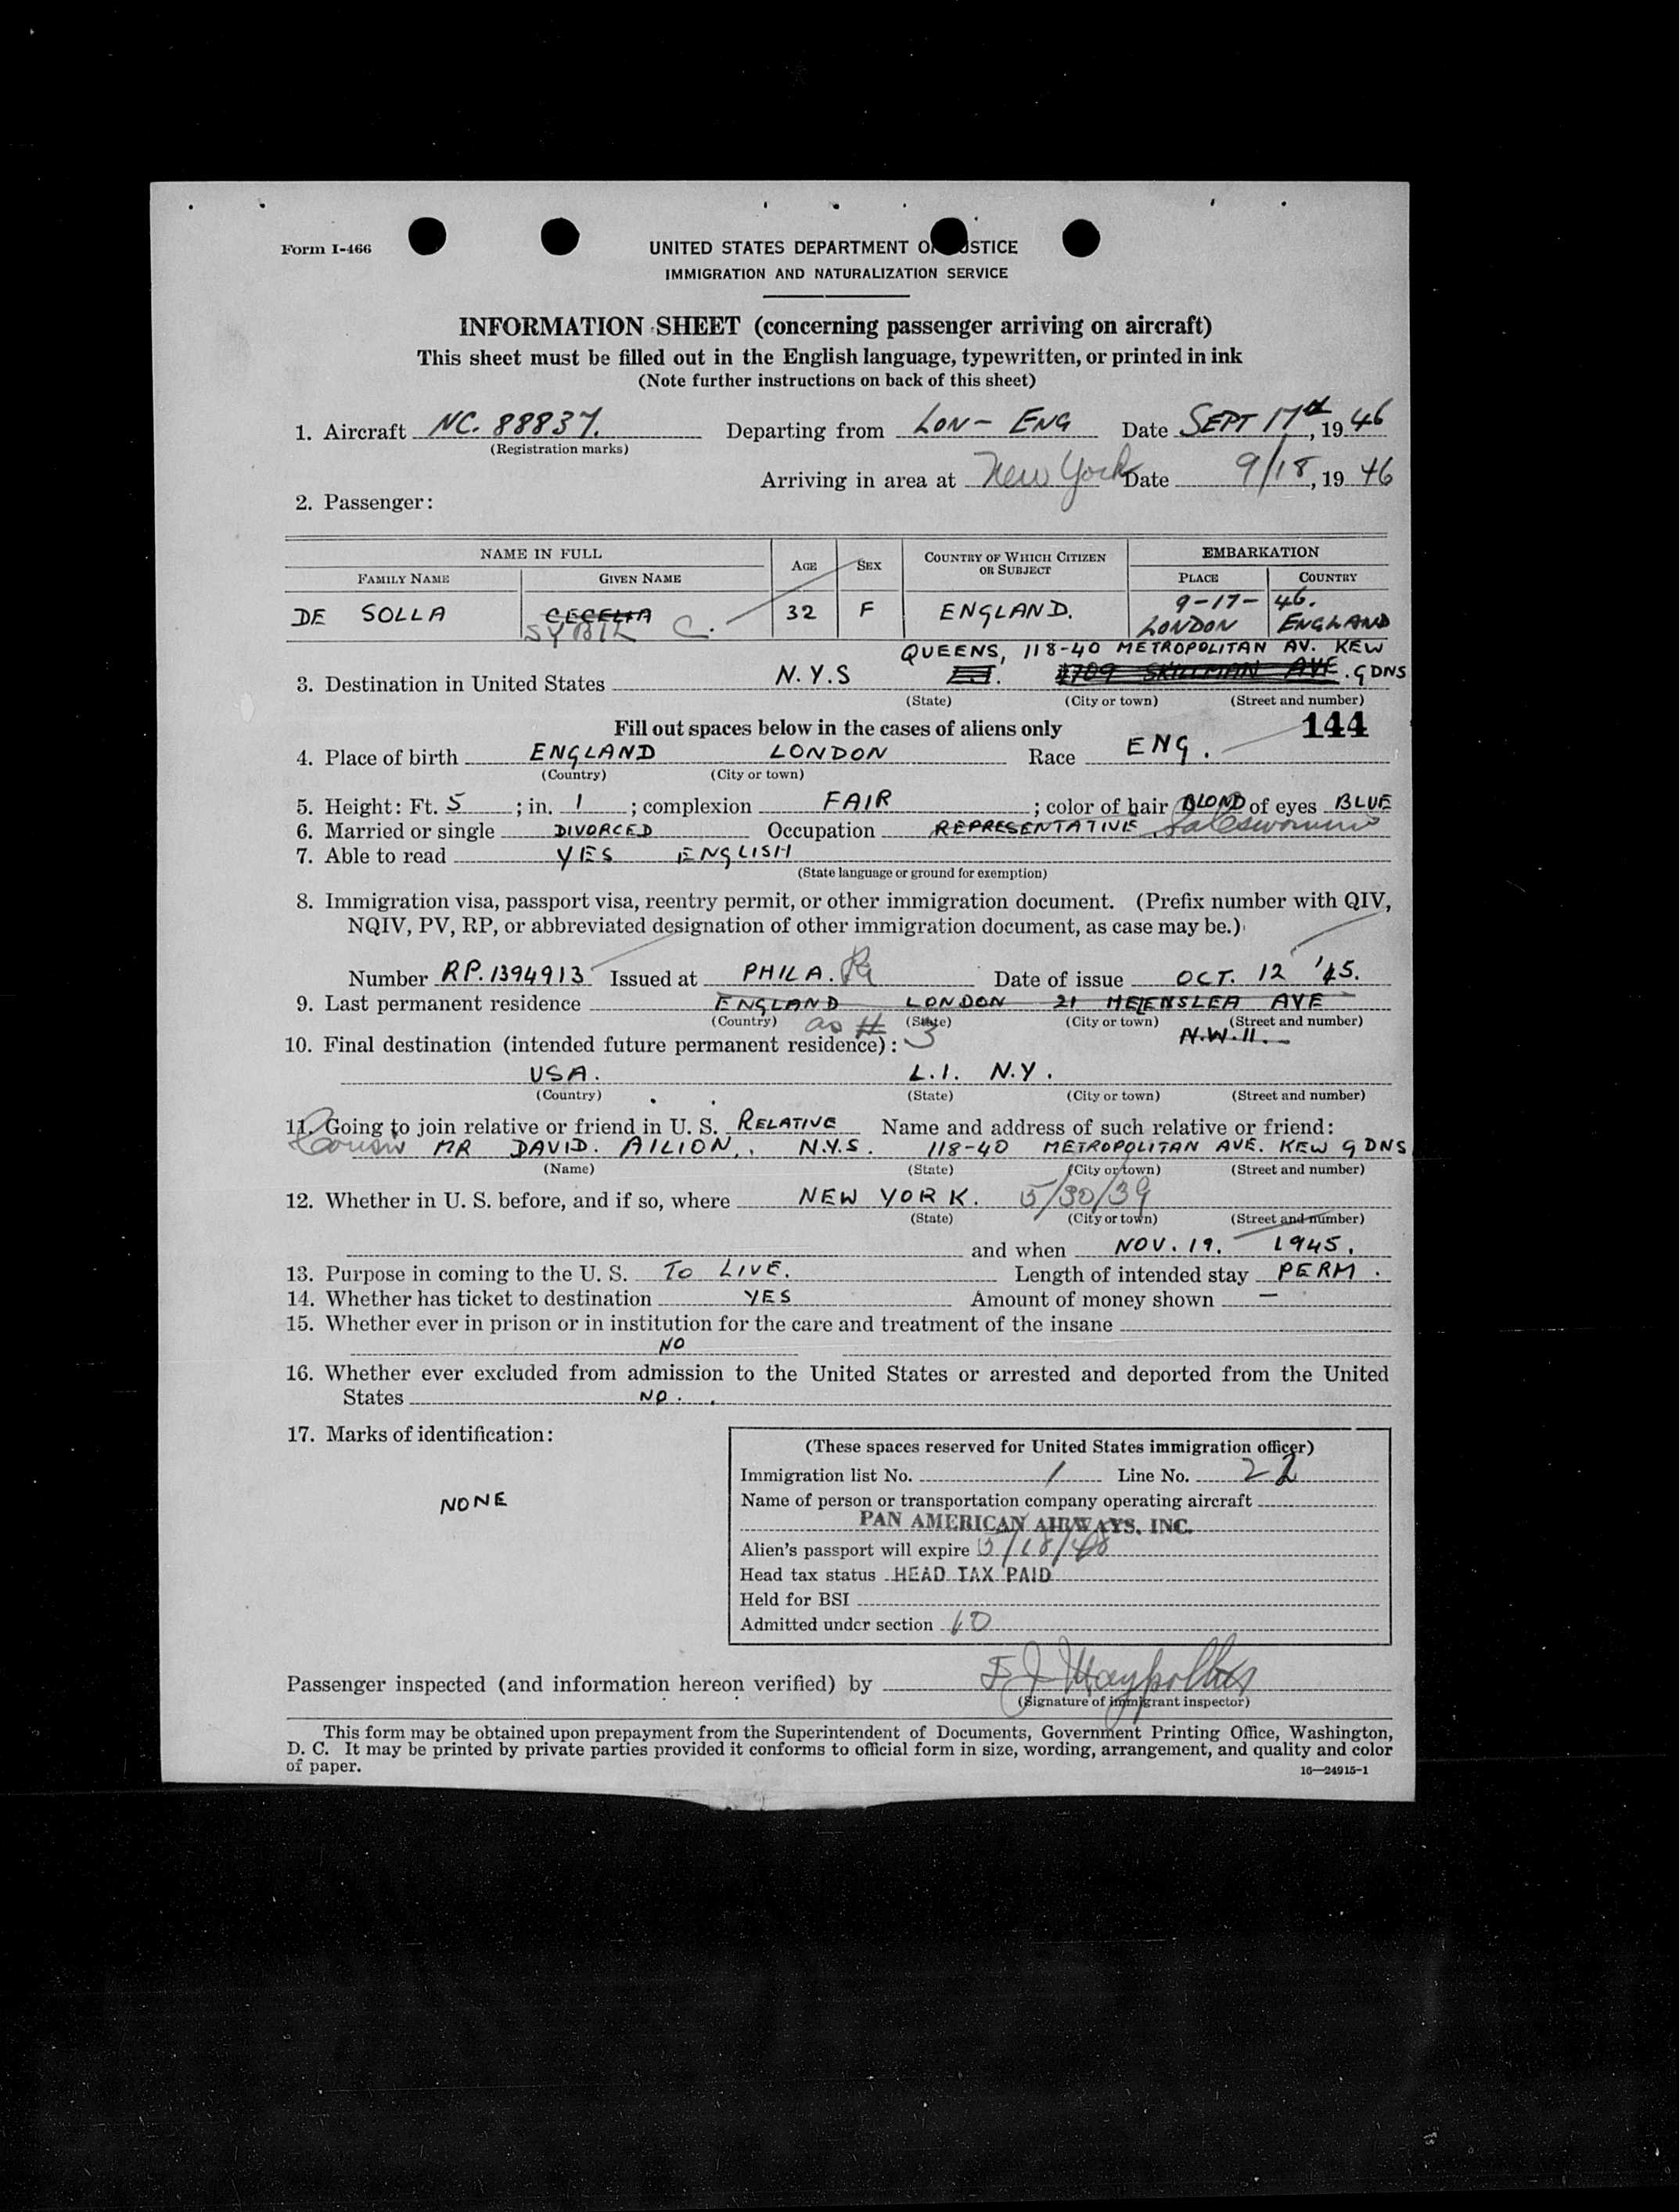 Form I-466
UNITED STATES DEPARTMENT O STICE
IMMIGRATION AND NATURALIZATION SERVICE
INFORMATION SHEET (concerning passenger arriving on aircraft)
This sheet must be filled out in the English language, typewritten, or printed in ink
(Note further instructions on back of this sheet)
1. Aircraft NC. 88837. Departing from LON - ENG Date SEPT 17th, 1946
(Registration marks)
Arriving in area at New York Date 9/18, 1946
2. Passenger:
NAME IN FULL AGE SEX COUNTRY OF WHICH CITIZEN OR SUBJECT EMBARKATION
FAMILY NAME GIVEN NAME PLACE COUNTRY
DE SOLLA CECELIA 32 F ENGLAND. 9-17-46.
SYBIL C. LONDON ENGLAND
QUEENS, 118-40 METROPOLITAN AV. KEW
3. Destination in United States N.Y.S 4709 SKILLMAN AVE. GDNS
(State) (City or town) (Street and number)
Fill out spaces below in the cases of aliens only 144
4. Place of birth ENGLAND LONDON Race ENG.
(Country) (City or town)
5. Height: Ft. 5; in. 1; complexion FAIR; color of hair BLOND of eyes BLUE
6. Married or single DIVORCED Occupation REPRESENTATIVE. Saleswoman
7. Able to read YES ENGLISH
(State language or ground for exemption)
8. Immigration visa, passport visa, reentry permit, or other immigration document. (Prefix number with QIV,
NQIV, PV, RP, or abbreviated designation of other immigration document, as case may be.)
Number RP. 1394913 Issued at PHILA. Date of issue OCT. 12 '45.
9. Last permanent residence ENGLAND LONDON 21 HELENSLEA AVE
(Country) as # 3 (State) (City or town) (Street and number)
N.W.11.
10. Final destination (intended future permanent residence):
USA. L.I. N.Y.
(Country) (State) (City or town) (Street and number)
11. Going to join relative or friend in U. S. RELATIVE Name and address of such relative or friend:
Cousin MR DAVID. AILION,. N.Y.S. 118-40 METROPOLITAN AVE. KEW GDNS
(Name) (State) (City or town) (Street and number)
12. Whether in U. S. before, and if so, where NEW YORK. 5/30/39
(State) (City or town) (Street and number)
and when NOV. 19. 1945.
13. Purpose in coming to the U. S. TO LIVE. Length of intended stay PERM.
14. Whether has ticket to destination YES Amount of money shown —
15. Whether ever in prison or in institution for the care and treatment of the insane
NO
16. Whether ever excluded from admission to the United States or arrested and deported from the United
States NO.
17. Marks of identification:
NONE
(These spaces reserved for United States immigration officer)
Immigration list No. 1 Line No. 22
Name of person or transportation company operating aircraft
PAN AMERICAN AIRWAYS, INC.
Alien's passport will expire 5/18/48
Head tax status HEAD TAX PAID
Held for BSI
Admitted under section 10
Passenger inspected (and information hereon verified) by
(Signature of immigrant inspector)
This form may be obtained upon prepayment from the Superintendent of Documents, Government Printing Office, Washington,
D. C. It may be printed by private parties provided it conforms to official form in size, wording, arrangement, and quality and color
of paper.
16—24915-1